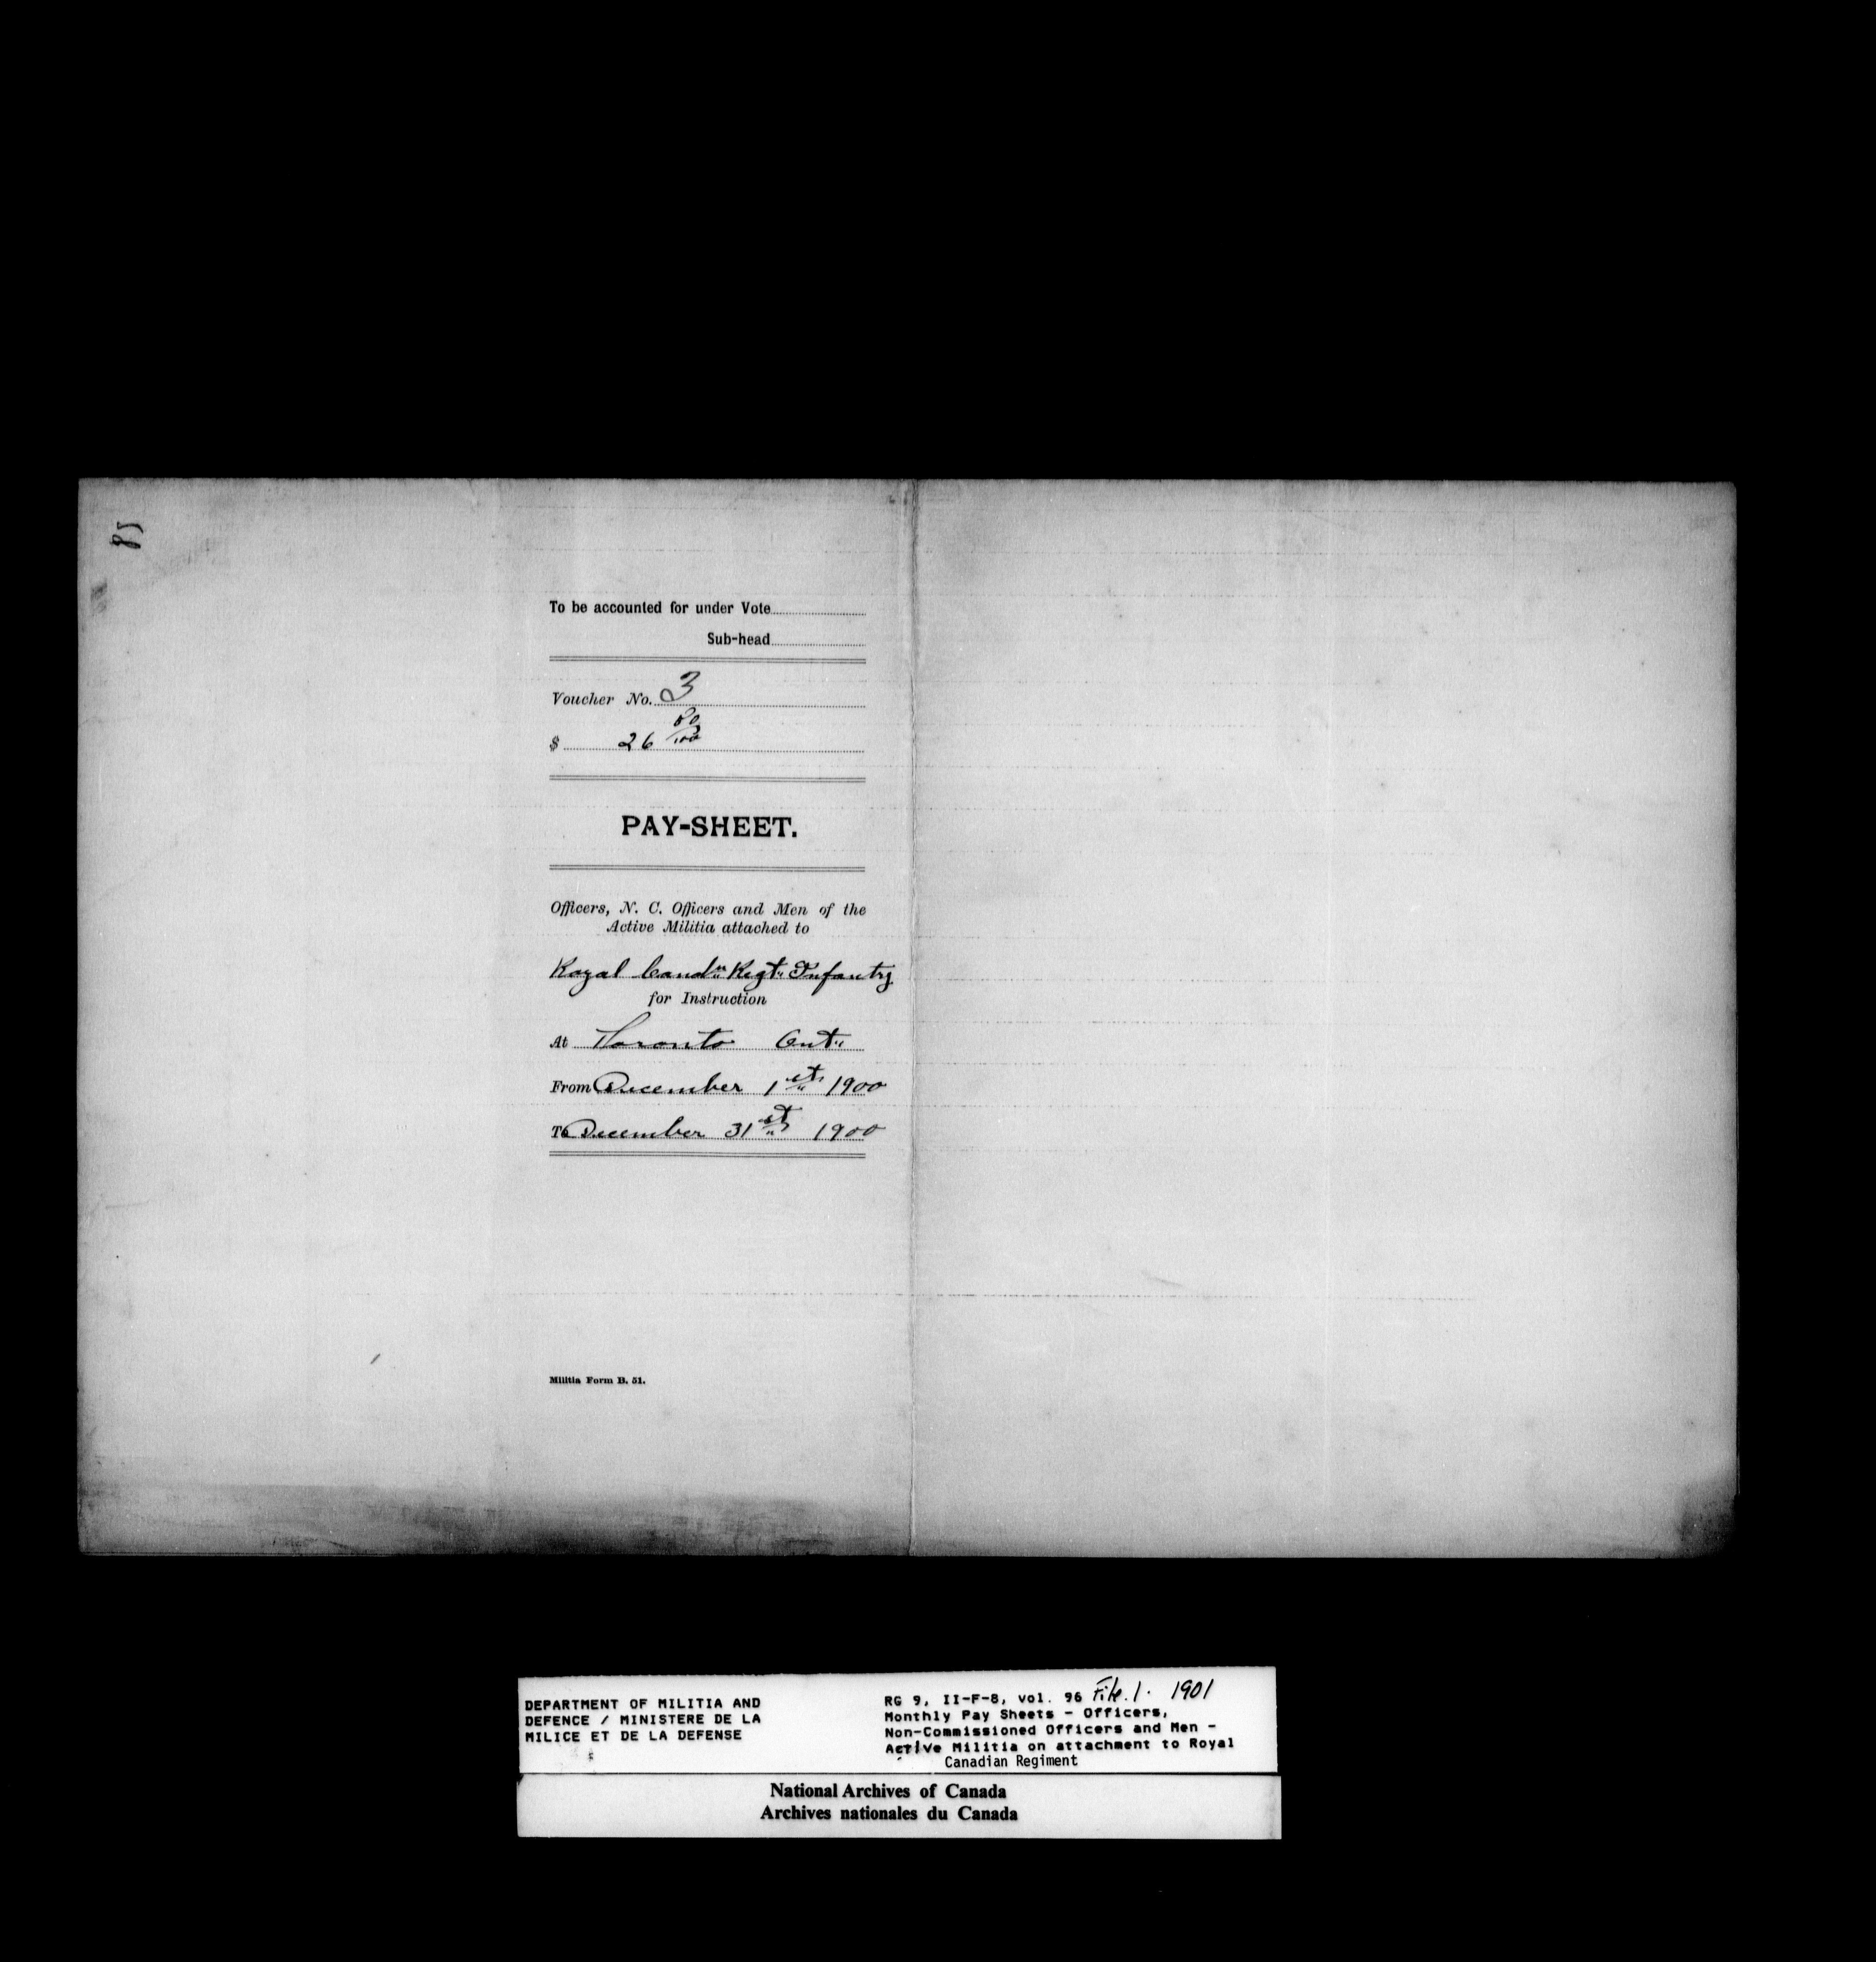 85
To be accounted for under Vote
Sub-head
Voucher No. 3
$ 26 80/100
PAY-SHEET.
Officers, N. C. Officers and Men of the
Active Militia attached to
Royal Candn Regt. Infantry
for Instruction
At Toronto Ont.
From December 1st 1900
To December 31st 1900
Militia Form B. 51.
DEPARTMENT OF MILITIA AND
DEFENCE / MINISTERE DE LA
MILICE ET DE LA DEFENSE
RG 9, II-F-8, vol. 96 File. 1. 1901
Monthly Pay Sheets - Officers,
Non-Commissioned Officers and Men -
Active Militia on attachment to Royal
Canadian Regiment
National Archives of Canada
Archives nationales du Canada